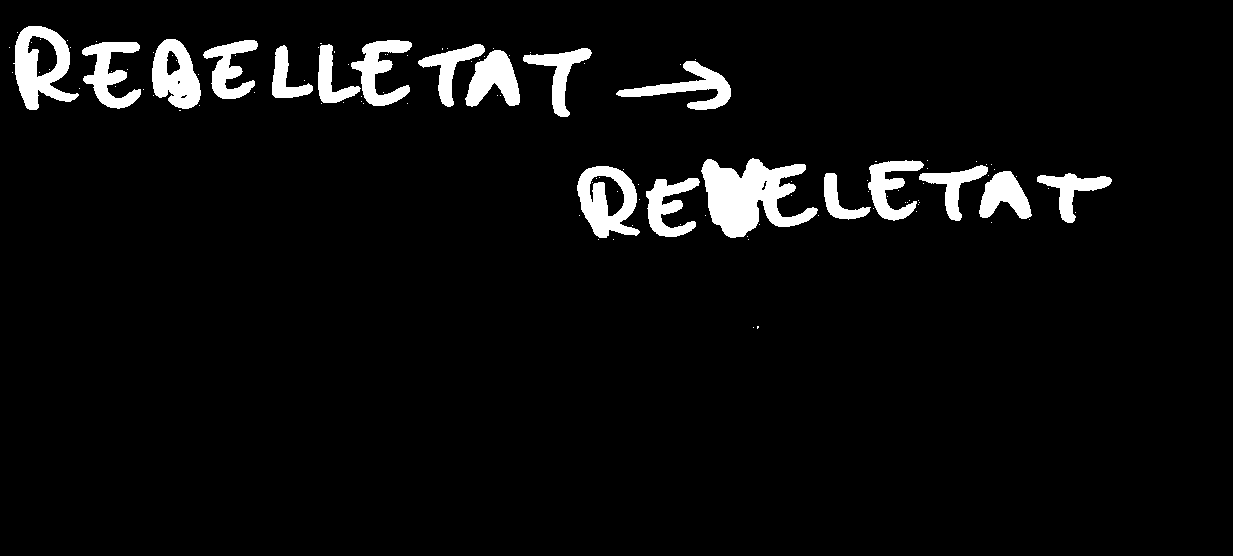 REBELLETAT →
REVELETAT